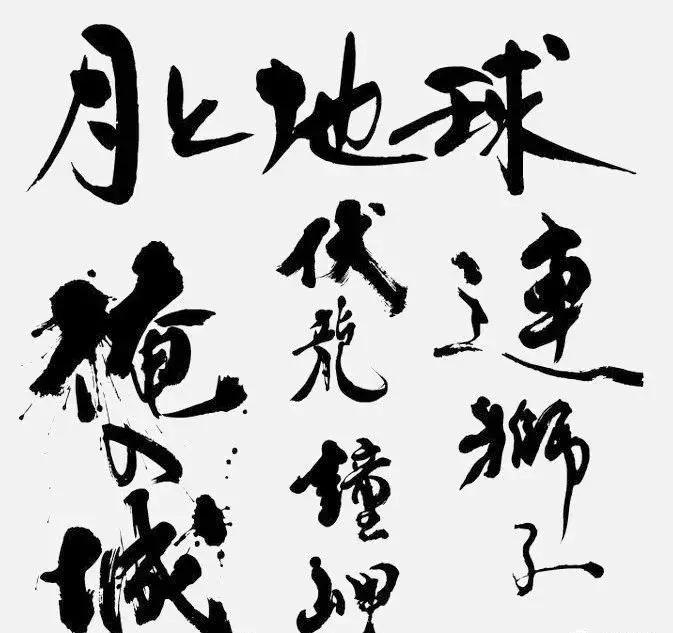 月と地球
連獅子
伏龍
鐘岬
俺の城